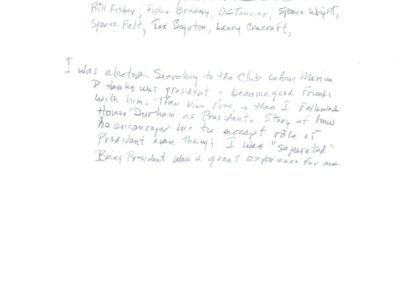 Bill Fisher, Sophie Brodway, O.C. Tanner, Spence Wright,
Spence Felt, Tex Boynton, Lenny Cracraft,
I was elected Secretary to the Club when Marion
D Hanks was president - became good friends
with him. Then Vice Pres, + then I followed
Homer Durham as President. Story of how
he encouraged me to accept role of
President even though I was "separated"
Being President was a great experience for me